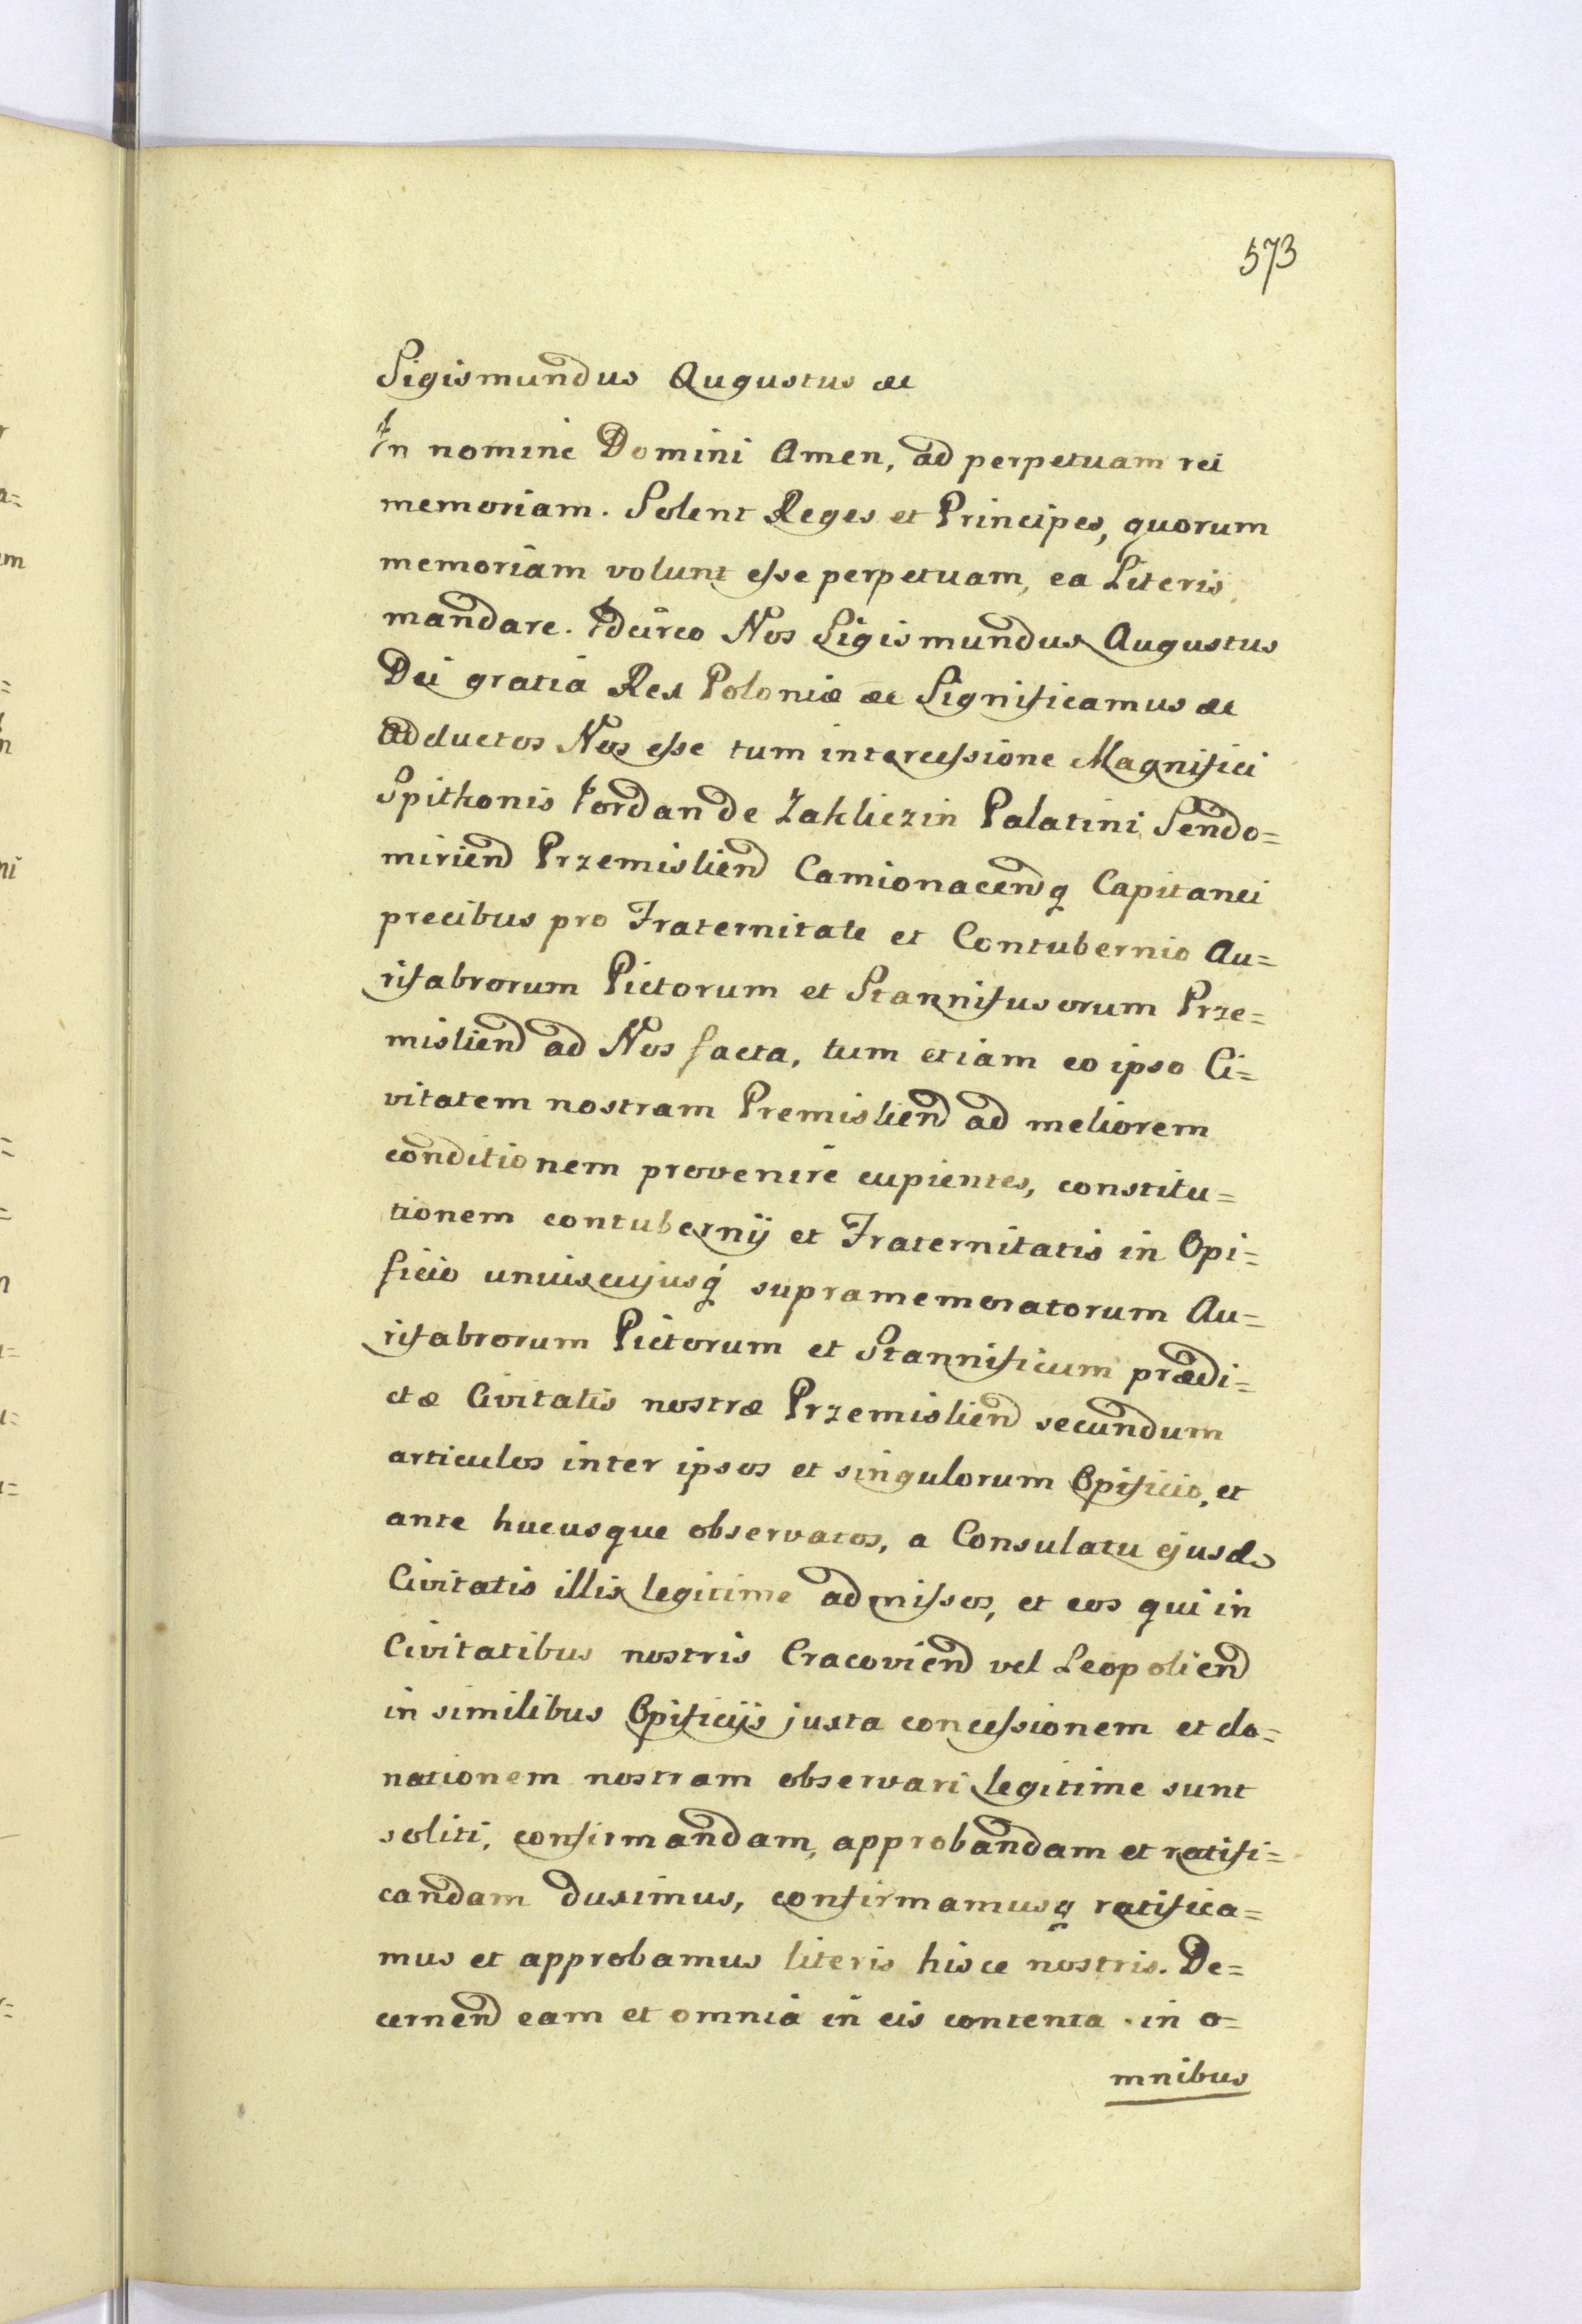 573
Sigismundus Augustus &c
In nomine Domini Amen, ad perpetuam rei
memoriam. Solent Reges et Principes, quorum
memoriam volunt esse perpetuam, ea Literis
mandare. Idcirco Nos Sigismundus Augustus
Dei gratia Rex Poloniæ &c Significamus &c
adductos Nos esse tum intercessione Magnifici
Spithonis Jordan de Zakliczin Palatini Sendo=
mirien Przemislien Camionacenq Capitanei
precibus pro Fraternitate et Contubernio Au=
rifabrorum Pictorum et Stannifusorum Prze=
mislien ad Nos facta, tum etiam eo ipso Ci=
vitatem nostram Premislien ad meliorem
conditionem provenire cupientes, constitu=
tionem contubernij et Fraternitatis in Opi=
ficio uniuscujusq supramemoratorum Au=
rifabrorum Pictorum et Stannificum prædi=
ctæ Civitatis nostræ Przemislien secundum
articulos inter ipsos et singulorum Opificio, et
ante hucusque observatos, a Consulatu ejusd
Civitatis illis legitime admissos, et eos qui in
Civitatibus nostris Cracovien vel Leopolien
in similibus Opificijs juxta concessionem et do=
nationem nostram observari legitime sunt
soliti, confirmandam, approbandam et ratifi=
candam duximus, confirmamusq ratifica=
mus et approbamus literis hisce nostris. De=
cernen eam et omnia in eis contenta in o=
mnibus